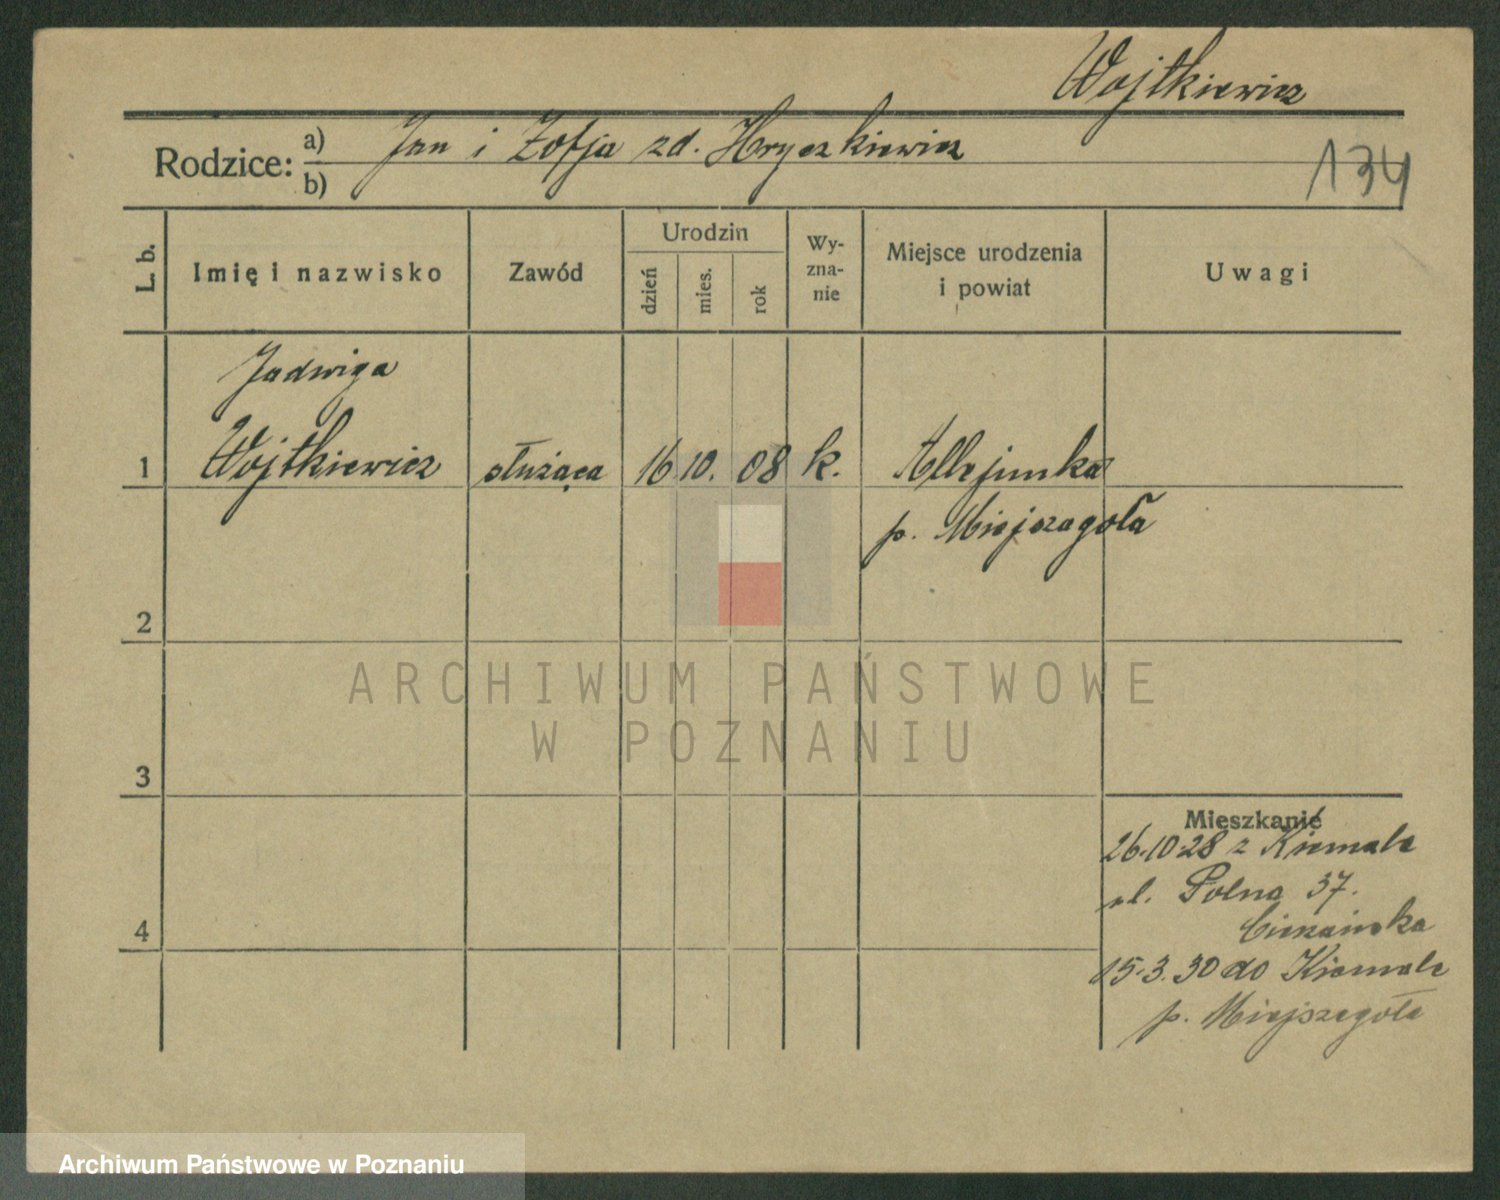 Wojtkiewicz
Rodzice: a) Jan i Zofja zd. Hryczkiewicz
b)
134
L. b.
Imię i nazwisko
Zawód
Urodzin
dzień
mies.
rok
Wy-
zna-
nie
Miejsce urodzenia
i powiat
Uwagi
Jadwiga
1 Wojtkiewicz służąca 16 10. 08 k.
p. Miejszagoła
2
3
4
Mieszkanie
26.10.28 z Kiemale
ul. Polna 37.
15.3.30 do Kiemale
p. Miejszagoła
ARCHIWUM PAŃSTWOWE
W POZNANIU
Archiwum Państwowe w Poznaniu